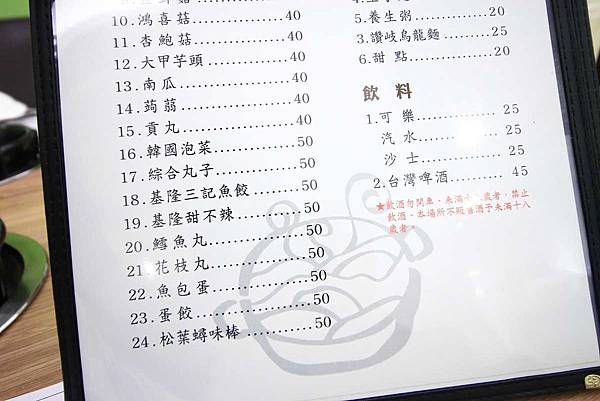 10.鴻喜菇..................40
11.杏鮑菇..................40
12.大甲芋頭..............40
13.南瓜......................40
14.蒟蒻......................40
15.貢丸......................40
16.韓國泡菜..............50
17.綜合丸子..............50
18.基隆三記魚餃........50
19.基隆甜不辣............50
20.鱈魚丸..................50
21.花枝丸..................50
22.魚包蛋..................50
23.蛋餃......................50
24.松葉蟳味棒............50
5.養生粥..............20
3.讚岐烏龍麵.........25
6.甜 點.................20
飲 料
1.可 樂............... 25
汽 水............... 25
沙 士............... 25
2.台灣啤酒.......... 45
★飲酒勿開車,未滿十八歲者,禁止
飲酒。本場所不販售酒予未滿十八
歲者。